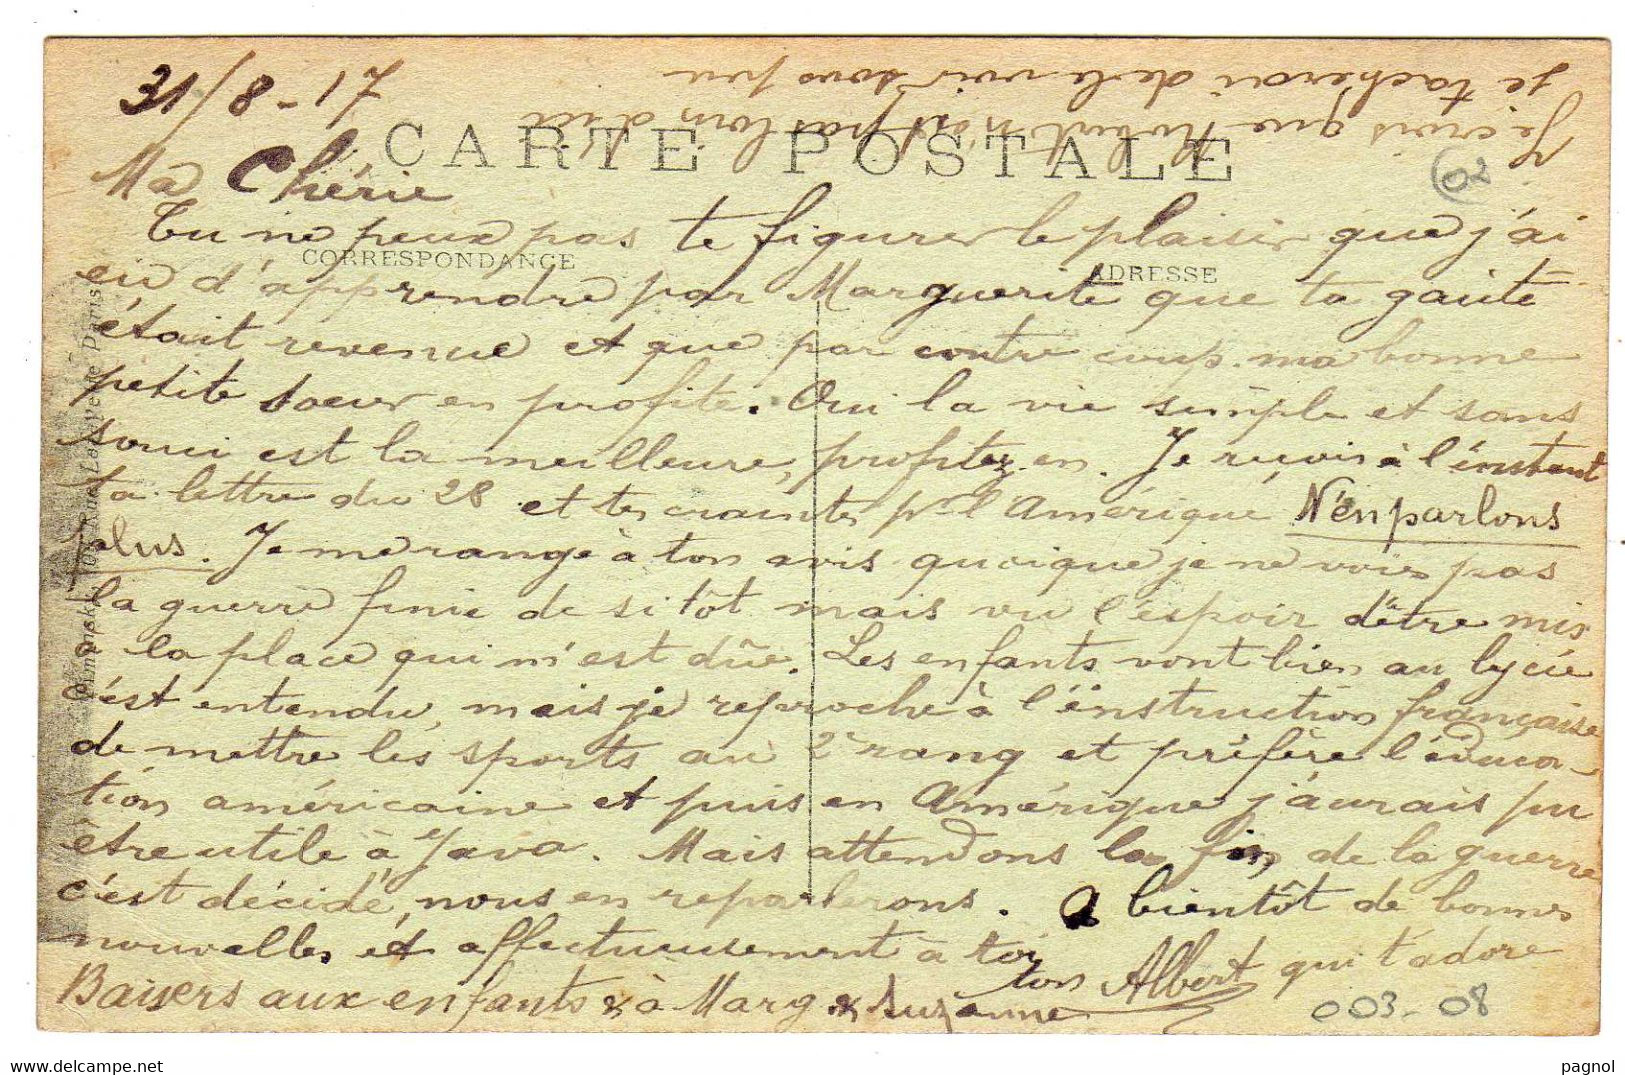 31/8-17
Je crois que Robert n'est pas loin d'ici
je tacherai de le voir sous peu
CARTE POSTALE
02
Ma Chérie
Tu ne peux pas te figurer le plaisir que j'ai
CORRESPONDANCE
ADRESSE
eu d'apprendre par Marguerite que ta gaité
était revenue et que par contre coup ma bonne
petite soeur en profite. Oui la vie simple et sans
souci est la meilleure, profitez en. Je reçois à l'instant
ta lettre du 28 et tes craintes pr l'Amérique N'en parlons
plus. Je me range à ton avis quoique je ne vois pas
la guerre finie de sitôt mais vu l'espoir d'être mis
à la place qui m'est dûe. Les enfants vont bien au lycée
c'est entendu, mais je reproche à l'instruction française
de mettre les sports au 2e rang et préfère l'éduca-
tion américaine et puis en Amérique j'aurais pu
être utile à Java. Mais attendons la fin de la guerre
c'est décidé, nous en reparlerons. A bientôt de bonnes
nouvelles et affectueusement à toi
ton Albert qui t'adore
Baisers aux enfants & à Marg & Suzanne
003-08
Rue Lafayette Paris
pagnol